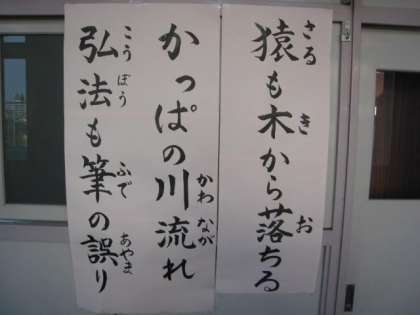 猿も木から落ちる
さる き お
かっぱの川流れ
かわ なが
弘法も筆の誤り
こうぼう ふで あやま